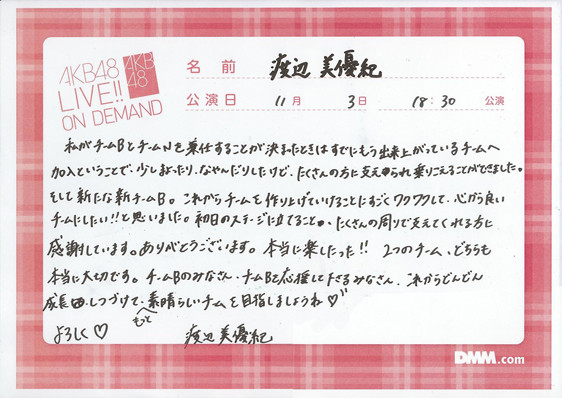 AKB48
LIVE!!
ON DEMAND
AKB
48
名前 渡辺 美優紀
公演日 11月 3日 18:30 公演
私がチームBとチームNを兼任することが決まったときはすでにもう出来上がっているチームへ
加入ということで、少しまよったり、なやんだりしたけど、たくさんの方に支えられ乗りこえることができました。
そして新たな新チームB。これからチームを作り上げていけることにすごくワクワクして、心から良い
チームにしたい!!と思いました。初日のステージに立てること。、たくさんの周りで支えてくれる方に
感謝しています。ありがとうございます。本当に楽したった!! 2つのチーム、どちらも
本当に大切です。チームBのみなさん、チームBを応援して下さるみなさん、これからどんどん
成長しつづけて、もっと素晴らしいチームを目指しましょうね♡
よろしく♡ 渡辺 美優紀
DMM.com